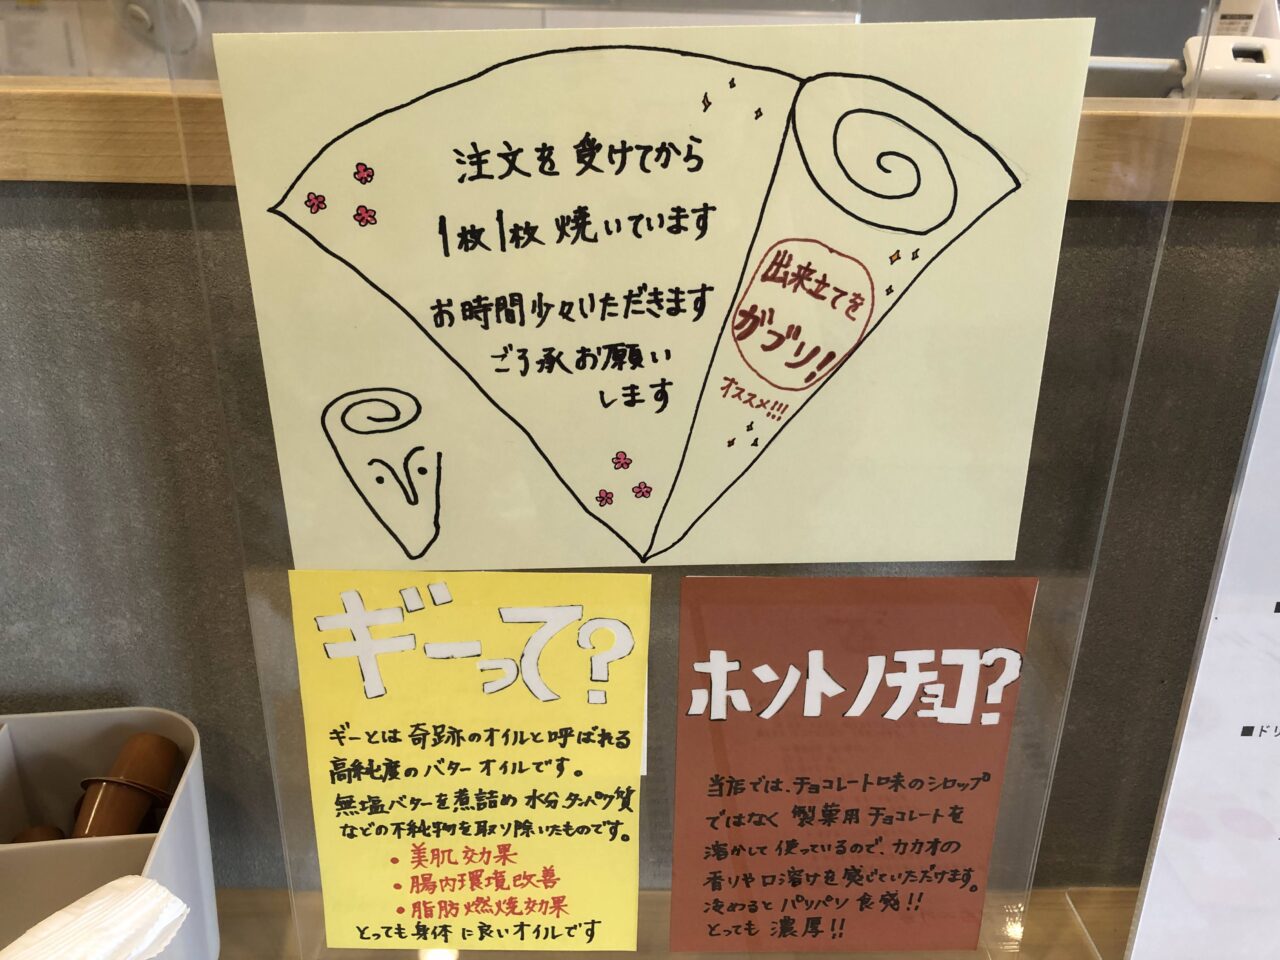 注文を受けてから
1枚1枚焼いています
お時間少々いただきます
ご了承お願い
します
出来立てを
ガブリ!
オススメ!!!
ギーって?
ギーとは奇跡のオイルと呼ばれる
高純度のバターオイルです。
無塩バターを煮詰め水分、タンパク質
などの不純物を取り除いたものです。
・美肌効果
・腸内環境改善
・脂肪燃焼効果
とっても身体に良いオイルです
ホントノチョコ?
当店では、チョコレート味のシロップ
ではなく製菓用チョコレートを
溶かして使っているので、カカオの
香りや口溶けを感じていただけます。
冷めるとパリパリ食感!!
とっても濃厚!!
■ドリ